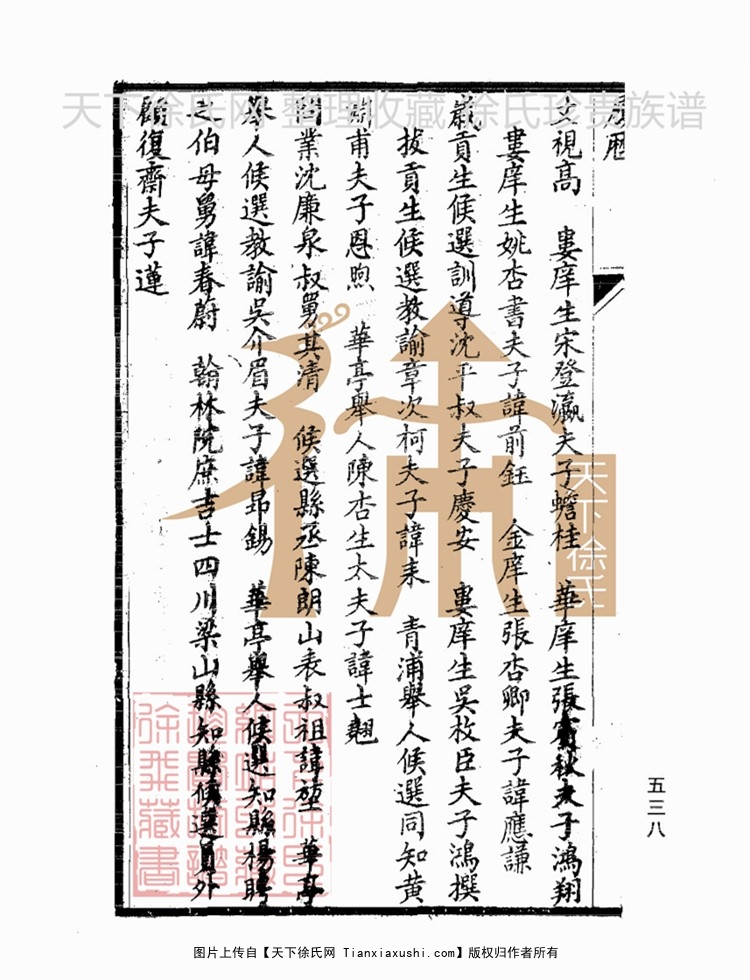 天下徐氏网 整理收藏 徐氏珍贵族谱
履歷
史視高 婁庠生宋登瀛夫子蟾桂 華庠生張賓秋夫子鴻翔
婁庠生姚杏書夫子諱前鈺 金庠生張杏卿夫子諱應謙
歲貢生候選訓導沈平叔夫子慶安 婁庠生吳枚臣夫子鴻撰
拔貢生候選教諭章次柯夫子諱耒 青浦舉人候選同知黄
甫夫子恩煦 華亭舉人陳杏生太夫子諱士翹
問業沈廉泉叔舅其清 候選縣丞陳朗山表叔祖諱堃 華亭
舉人候選教諭吳介眉夫子諱昂錫 華亭舉人候選知縣楊聘
之伯母舅諱春蔚 翰林院庶吉士四川梁山縣知縣候選員外
顧復齋夫子蓮
五三八
天下徐氏
图片上传自【天下徐氏网 Tianxiaxushi.com】版权归作者所有